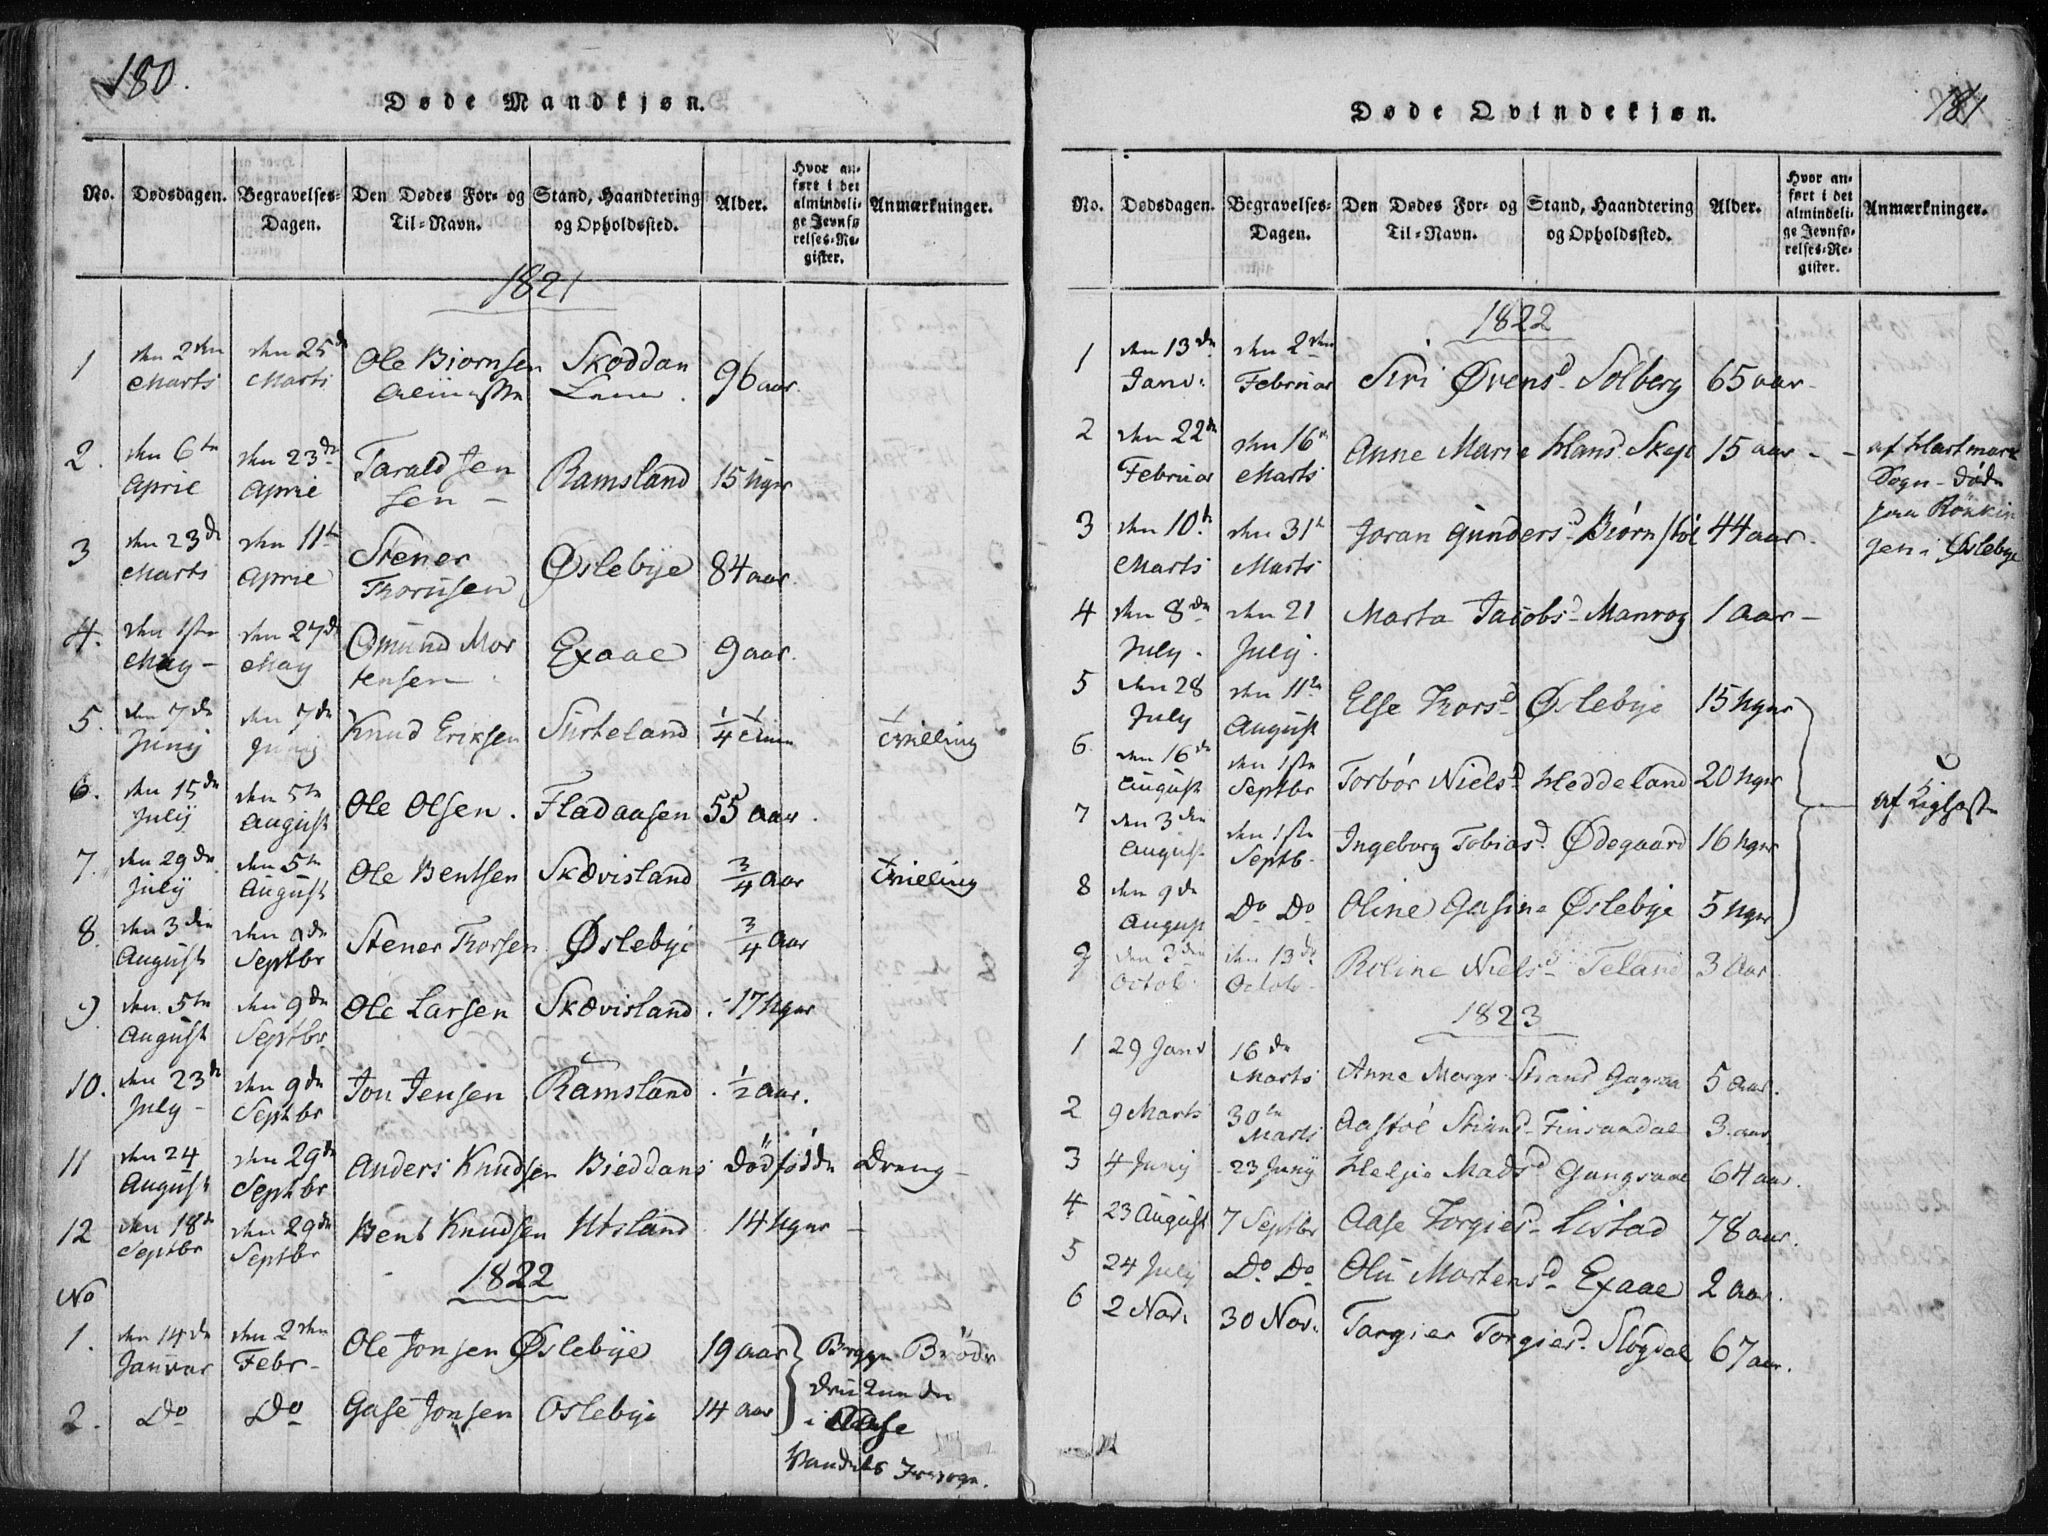 180.
Døde Mandkjøn.
No. Dødsdagen. Begravelses-Dagen. Den Dødes For- og Til-Navn. Stand, Haandtering og Opholdssted. Alder. Hvor anført i det almindelige Jevnførelses-Register. Anmærkninger.
1821
1 den 2den Marts den 25de Marts Ole Biornsen Skoddan 96 aar.
2. den 6te April den 23de April Tarald Jensen Ramsland 15 Uger
3 den 23de Marts den 11te April Stener Thorusen Øslebye 84 aar.
4. den 1ste May den 27de May Omund Mortensen Exaae 9 aar.
5. den 7de Junij den 7de Junij Knud Eriksen Sirteland 1/4 Time Tvilling
6. den 15de Julij den 5te August Ole Olsen. Fladaasen 55 aar.
7. den 29de Julij den 5te August Ole Bentsen Skævisland 3/4 aar Tvilling
8. den 3die August den 9de Septbr Stener Thorsen Øslebye 3/4 aar
9. den 5te August den 9de Septbr Ole Larsen Skævisland. 17 Uger
10. den 23de July den 9de Septbr Jon Jensen Ramsland. 1/2 aar.
11 den 24 August den 29de Septbr Anders Knudsen Bieddans dödfödde Dreng
12 den 18de Septbr den 29de Septbr Bent Knudsen Utsland 14 Uger
1822
No
1. den 14de Januar den 2den Febr Ole Jonsen Øslebye 19 aar } Begge Brödre
druknende
2. Do Do Gase Jonsen Oslebye 14 aar i Aase
Vandets
181
Døde Qvindekjøn.
No. Dødsdagen. Begravelses-Dagen. Den Dødes For- og Til-Navn. Stand, Haandtering og Opholdssted. Alder. Hvor anført i det almindelige Jevnførelses-Register. Anmærkninger.
1822
1 den 13de Janv: den 2den Februar Siri Ørensd. Solberg 65 aar
2 den 22de Februar den 16de Marts Anne Marie Hans. 15 aar - af Hartmark
Sogn - döde
3 den 10de Marts den 31te Marts Joran Gundersd. Biørnstøl 44 aar.
i Øslebye
4 den 8de July. den 21 July. Marta Jacobsd. Manrog 1 aar
5 den 28 July den 11te August Else Thorsd. Øslebye 15 Uger
6. den 16de August den 1ste Septbr Torbør Nielsd. Heddeland 20 Uger
7 den 3die August den 1ste Septb. Ingeborg Tobiasd. Ødegaard 16 Uger
8 den 9de August Do Do Oline Gasine Øslebye 5 Uger
9 den 3die Octob. den 13de Octob. Roline Nielsd. Teland 3 Aar
1823
1 29 Janv 16de Marts Anne Margr. 5 aar.
2 9 Marts 30te Marts Finsaadal 3. aar
3 4 Junij 23 Junij Helje Madsd. 64 aar.
4 23 August 7 Septbr Aase Torgiesd. Listad 78 aar.
5 24 July Do Do Olu Mortensd. Exaae 2 aar.
6 2 Nov: 30 Nov: Targier Torgiesd. Slögdal 67 aar.